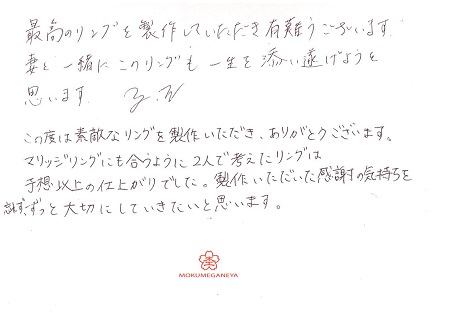 最高のリングを製作していただき有難うございます.
妻と一緒にこのリングも一生を添い遂げようと
思います.
この度は素敵なリングを製作いただき、ありがとうございます。
マリッジリングにも合うように2人で考えたリングは
予想以上の仕上がりでした。製作いただいた感謝の気持ちを
忘れず、ずっと大切にしていきたいと思います。
MOKUMEGANEYA